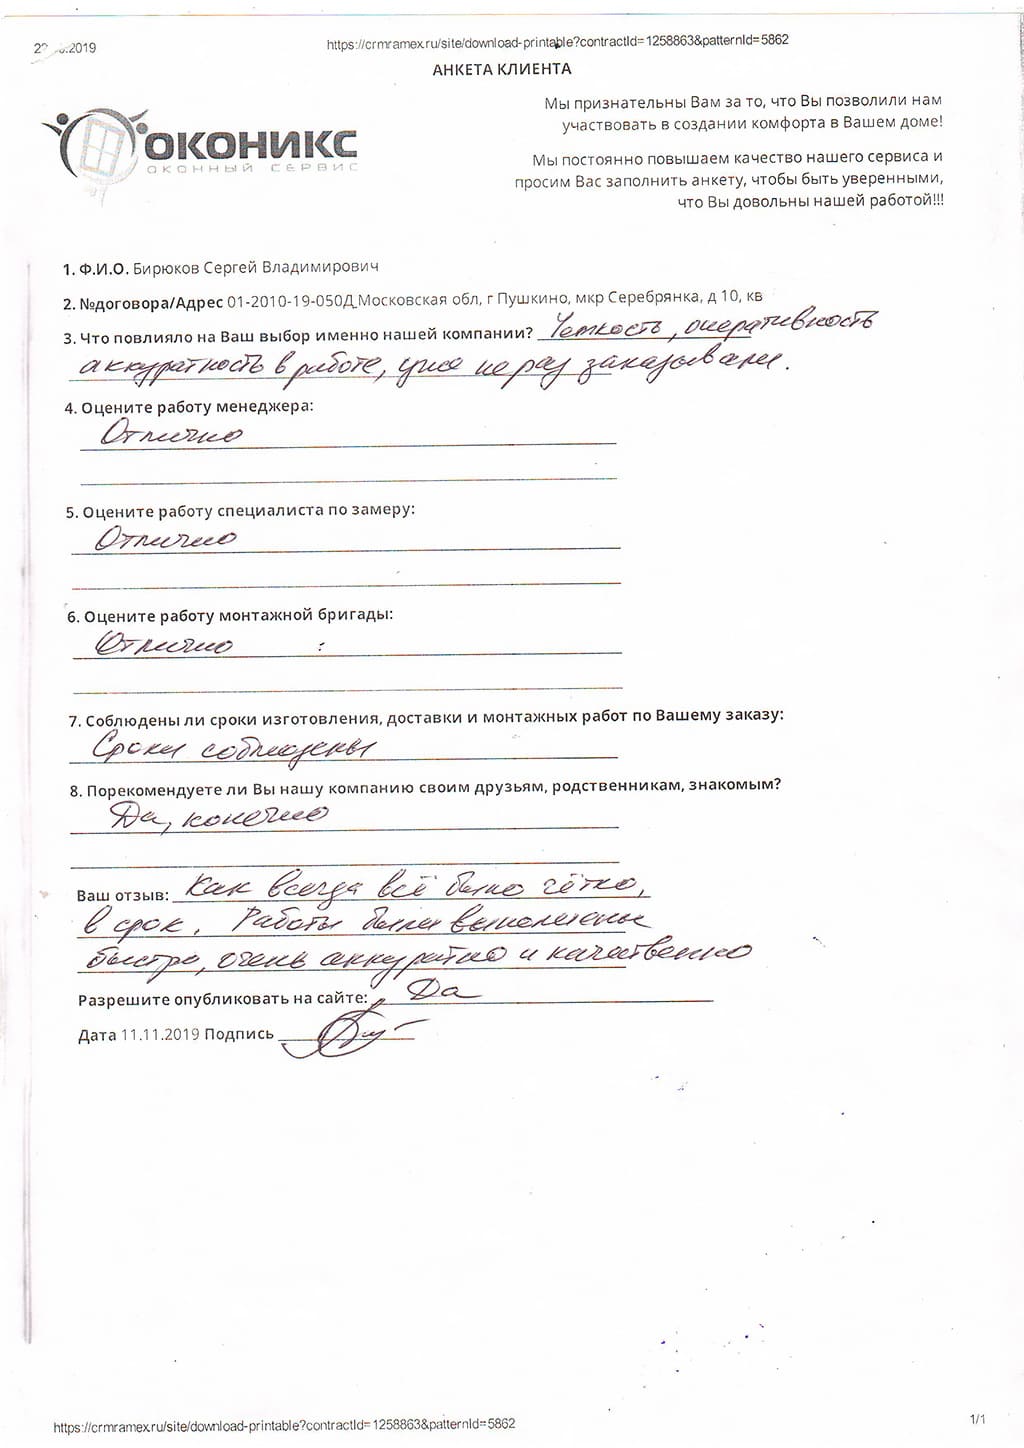 .2019
https://crmramex.ru/site/download-printable?contractId=1258863&patternId=5862
АНКЕТА КЛИЕНТА
ОКОНИКС
ОКОННЫЙ СЕРВИС
Мы признательны Вам за то, что Вы позволили нам
участвовать в создании комфорта в Вашем доме!
Мы постоянно повышаем качество нашего сервиса и
просим Вас заполнить анкету, чтобы быть уверенными,
что Вы довольны нашей работой!!!
1. Ф.И.О. Бирюков Сергей Владимирович
2. №договора/Адрес 01-2010-19-050Д Московская обл, г Пушкино, мкр Серебрянка, д 10, кв
3. Что повлияло на Ваш выбор именно нашей компании? Четкость, оперативность
аккуратность в работе, уже не раз заказывали.
4. Оцените работу менеджера:
Отлично
5. Оцените работу специалиста по замеру:
Отлично
6. Оцените работу монтажной бригады:
Отлично
7. Соблюдены ли сроки изготовления, доставки и монтажных работ по Вашему заказу:
Сроки соблюдены
8. Порекомендуете ли Вы нашу компанию своим друзьям, родственникам, знакомым?
Да, конечно
Ваш отзыв: Как всегда всё было чётко,
в срок. Работы были выполнены
быстро, очень аккуратно и качественно
Разрешите опубликовать на сайте: Да
Дата 11.11.2019 Подпись
https://crmramex.ru/site/download-printable?contractId=1258863&patternId=5862
1/1